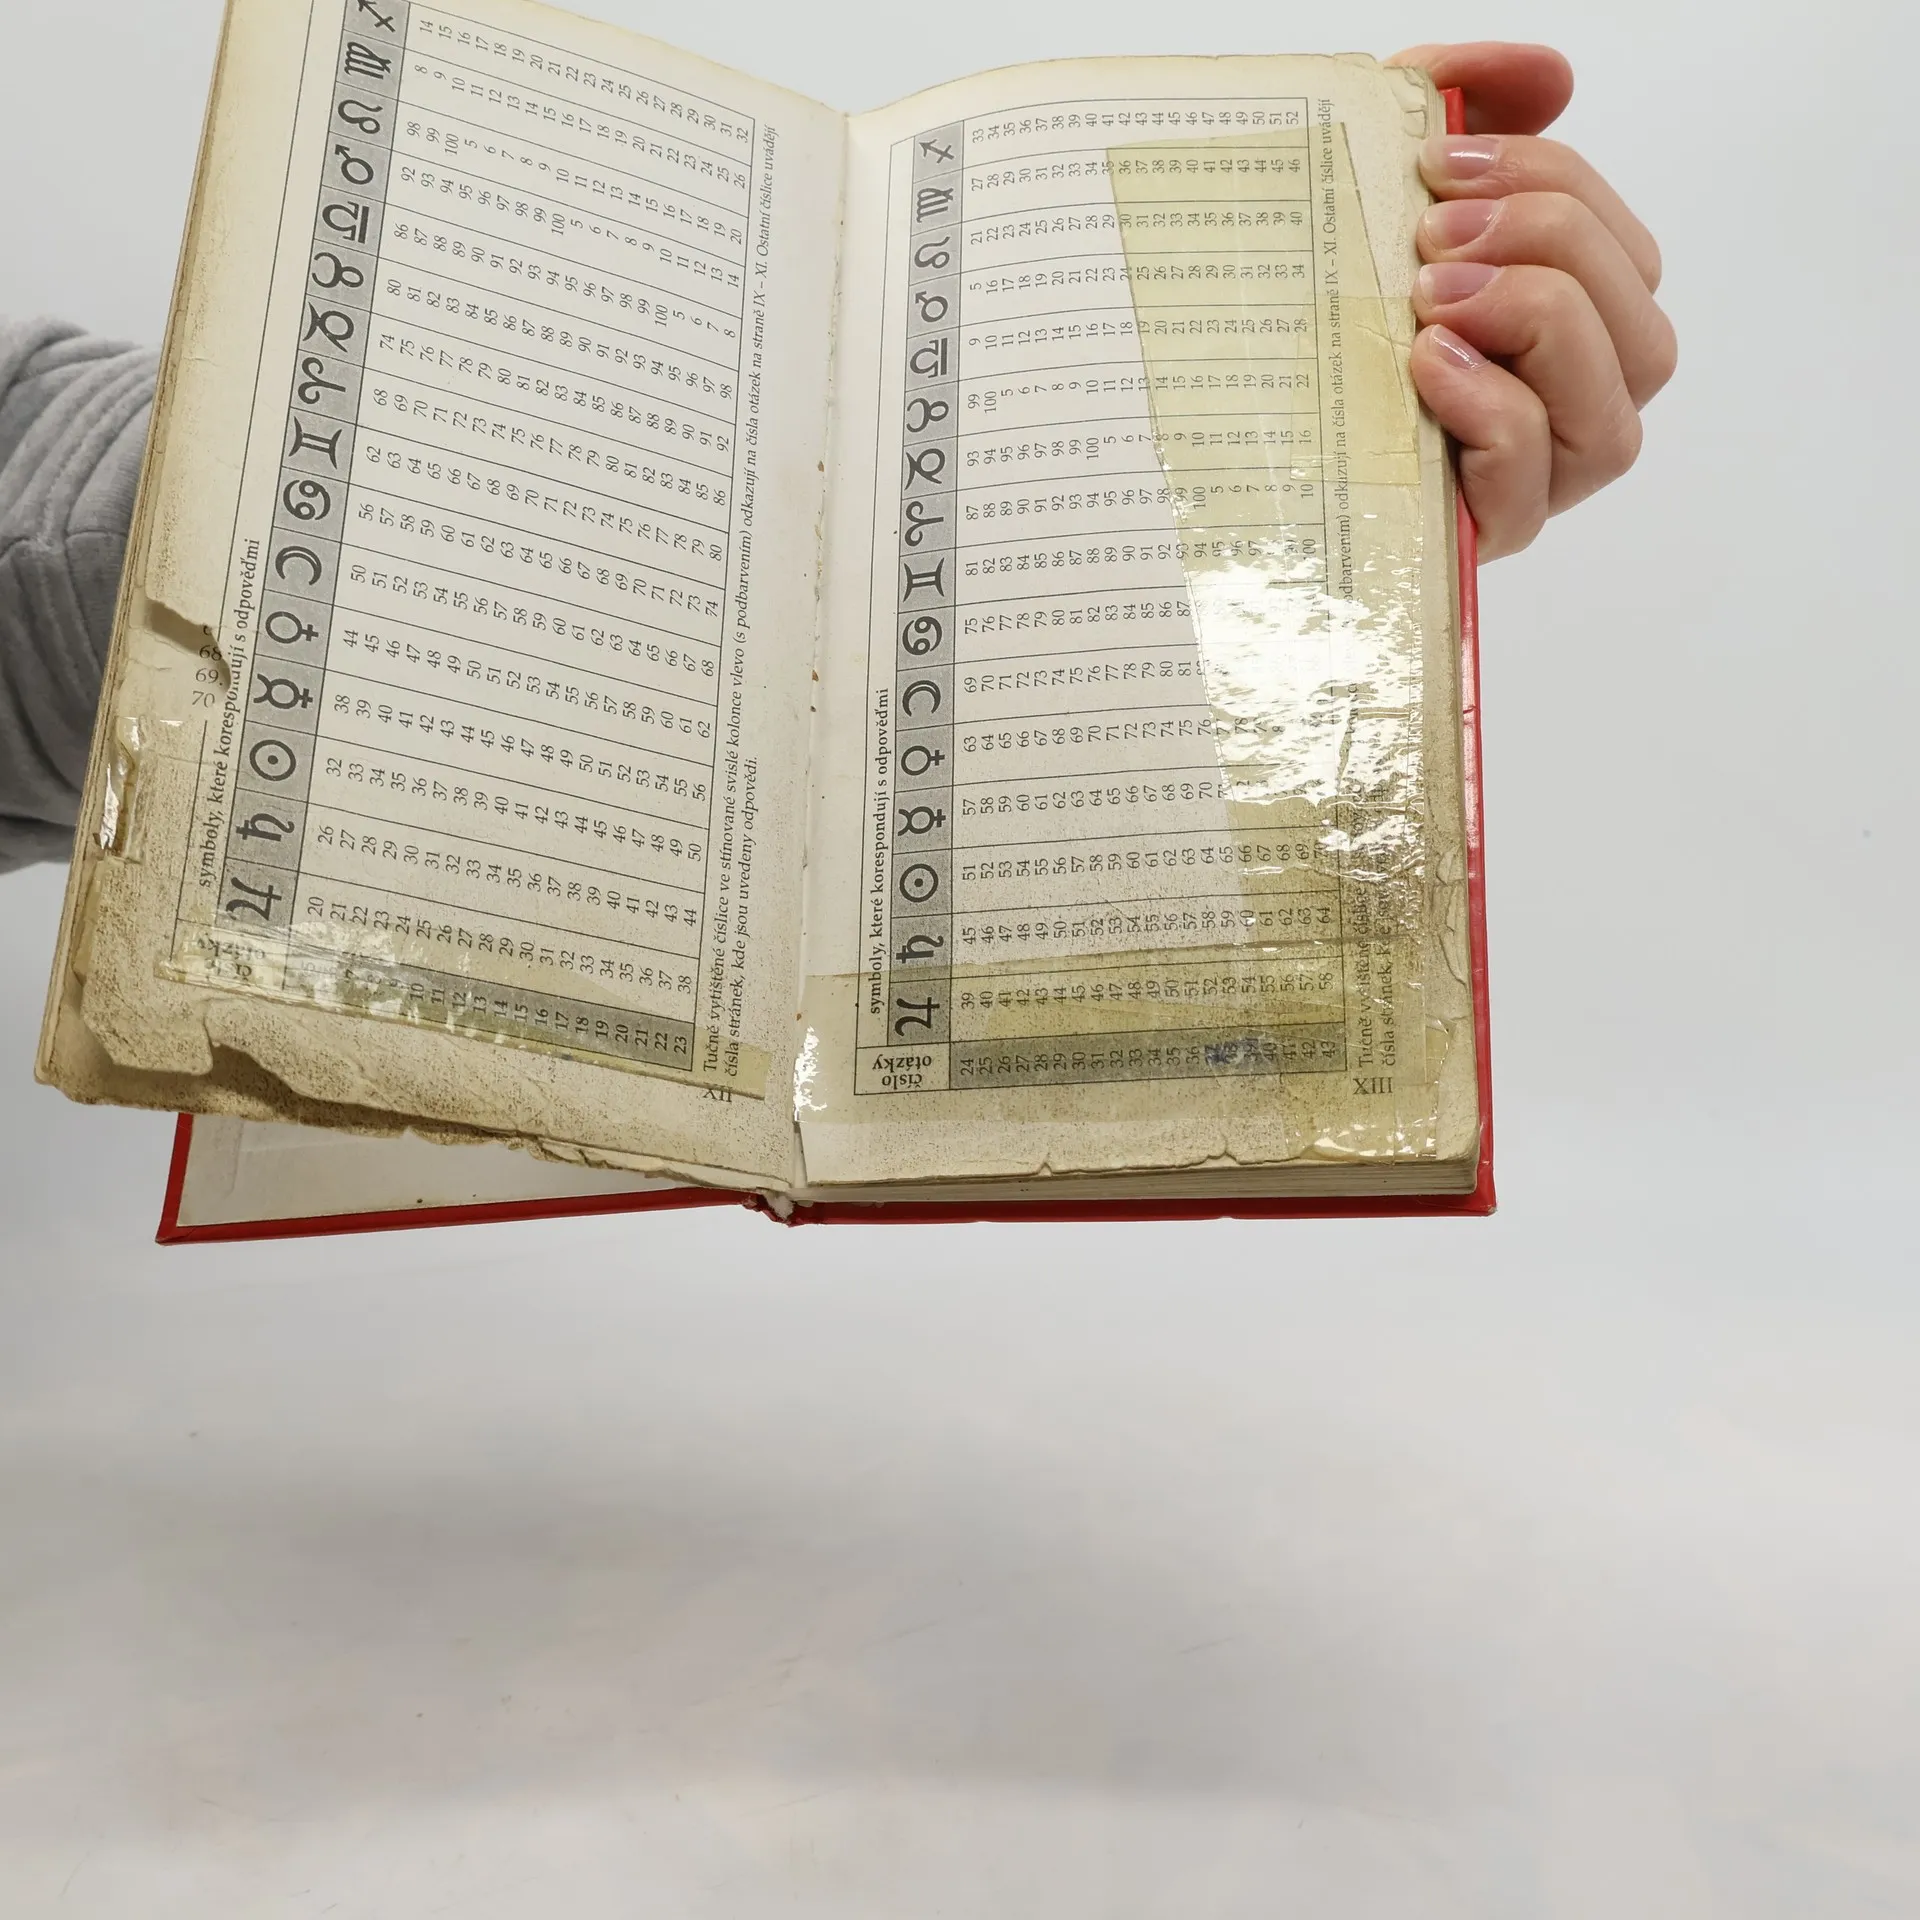 68
69.
70
symboly, které korespondují s odpověďmi
♃ ♄ ☉ ☿ ♀ ☽ ♋ ♊ ♈ ♑ ♉ ♎ ♂ ♌ ♍ ♐
20 26 32 38 44 50 56 62 68 74 80 86 92 98 8 14
21 27 33 39 45 51 57 63 69 75 81 87 93 99 9 15
22 28 34 40 46 52 58 64 70 76 82 88 94 100 10 16
23 29 35 41 47 53 59 65 71 77 83 89 95 5 11 17
24 30 36 42 48 54 60 66 72 78 84 90 96 6 12 18
10 25 31 37 43 49 55 61 67 73 79 85 91 97 7 13 19
11 26 32 38 44 50 56 62 68 74 80 86 92 98 8 14 20
12 27 33 39 45 51 57 63 69 75 81 87 93 99 9 15 21
13 28 34 40 46 52 58 64 70 76 82 88 94 100 10 16 22
14 29 35 41 47 53 59 65 71 77 83 89 95 5 11 17 23
15 30 36 42 48 54 60 66 72 78 84 90 96 6 12 18 24
16 31 37 43 49 55 61 67 73 79 85 91 97 7 13 19 25
17 32 38 44 50 56 62 68 74 80 86 92 98 8 14 20 26
18 33 39 45 51 57 63 69 75 81 87 93 99 9 15 21 27
19 34 40 46 52 58 64 70 76 82 88 94 100 10 16 22 28
20 35 41 47 53 59 65 71 77 83 89 95 5 11 17 23 29
21 36 42 48 54 60 66 72 78 84 90 96 6 12 18 24 30
22 37 43 49 55 61 67 73 79 85 91 97 7 13 19 25 31
23 38 44 50 56 62 68 74 80 86 92 98 8 14 20 26 32
Tučně vytištěné číslice ve stínované svislé kolonce vlevo (s podbarvením) odkazují na čísla otázek na straně IX – XI. Ostatní číslice uvádějí
čísla stránek, kde jsou uvedeny odpovědi.
XII
symboly, které korespondují s odpověďmi
číslo otázky ♃ ♄ ☉ ☿ ♀ ☽ ♋ ♊ ♈ ♑ ♉ ♎ ♂ ♌ ♍ ♐
24 39 45 51 57 63 69 75 81 87 93 99 9 5 21 27 33
25 40 46 52 58 64 70 76 82 88 94 100 10 16 22 28 34
26 41 47 53 59 65 71 77 83 89 95 5 11 17 23 29 35
27 42 48 54 60 66 72 78 84 90 96 6 12 18 24 30 36
28 43 49 55 61 67 73 79 85 91 97 7 13 19 25 31 37
29 44 50 56 62 68 74 80 86 92 98 8 14 20 26 32 38
30 45 51 57 63 69 75 81 87 93 99 9 15 21 27 33 39
31 46 52 58 64 70 76 82 88 94 100 10 16 22 28 34 40
32 47 53 59 65 71 77 83 89 95 5 11 17 23 29 35 41
33 48 54 60 66 72 78 84 90 96 6 12 18 24 30 36 42
34 49 55 61 67 73 79 85 91 97 7 13 19 25 31 37 43
35 50 56 62 68 74 80 86 92 98 8 14 20 26 32 38 44
36 51 57 63 69 75 81 87 93 99 9 15 21 27 33 39 45
52 58 64 70 76 94 100 10 16 22 28 34 40 46
53 59 65 95 5 11 17 23 29 35 41 47
39 54 60 66 78 96 6 12 18 24 30 36 42 48
40 55 61 67 97 7 13 19 25 31 37 43 49
41 56 62 68 8 14 20 26 32 38 44 50
42 57 63 69 9 15 21 27 33 39 45 51
43 58 64 10 16 22 28 34 40 46 52
Tučně vytištěné číslice podbarvením) odkazují na čísla otázek na straně IX – XI. Ostatní číslice uvádějí
čísla stránek, kde
XIII